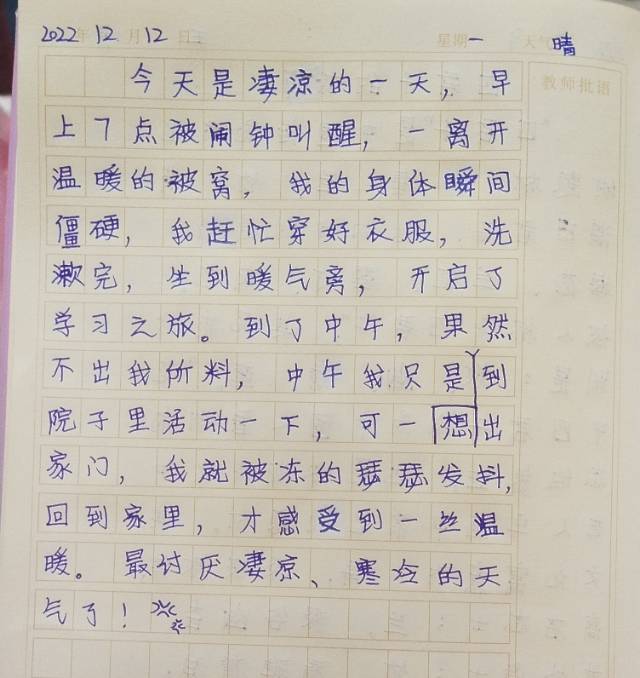 2022年12月12日 星期一 天气晴
教师批语
今天是凄凉的一天，早
上7点被闹钟叫醒，一离开
温暖的被窝，我的身体瞬间
僵硬，我赶忙穿好衣服，洗
漱完，坐到暖气旁，开启了
学习之旅。到了中午，果然
不出我所料，中午我只是到
院子里活动一下，可一想出
家门，我就被冻的瑟瑟发抖，
回到家里，才感受到一丝温
暖。最讨厌凄凉、寒冷的天
气了！